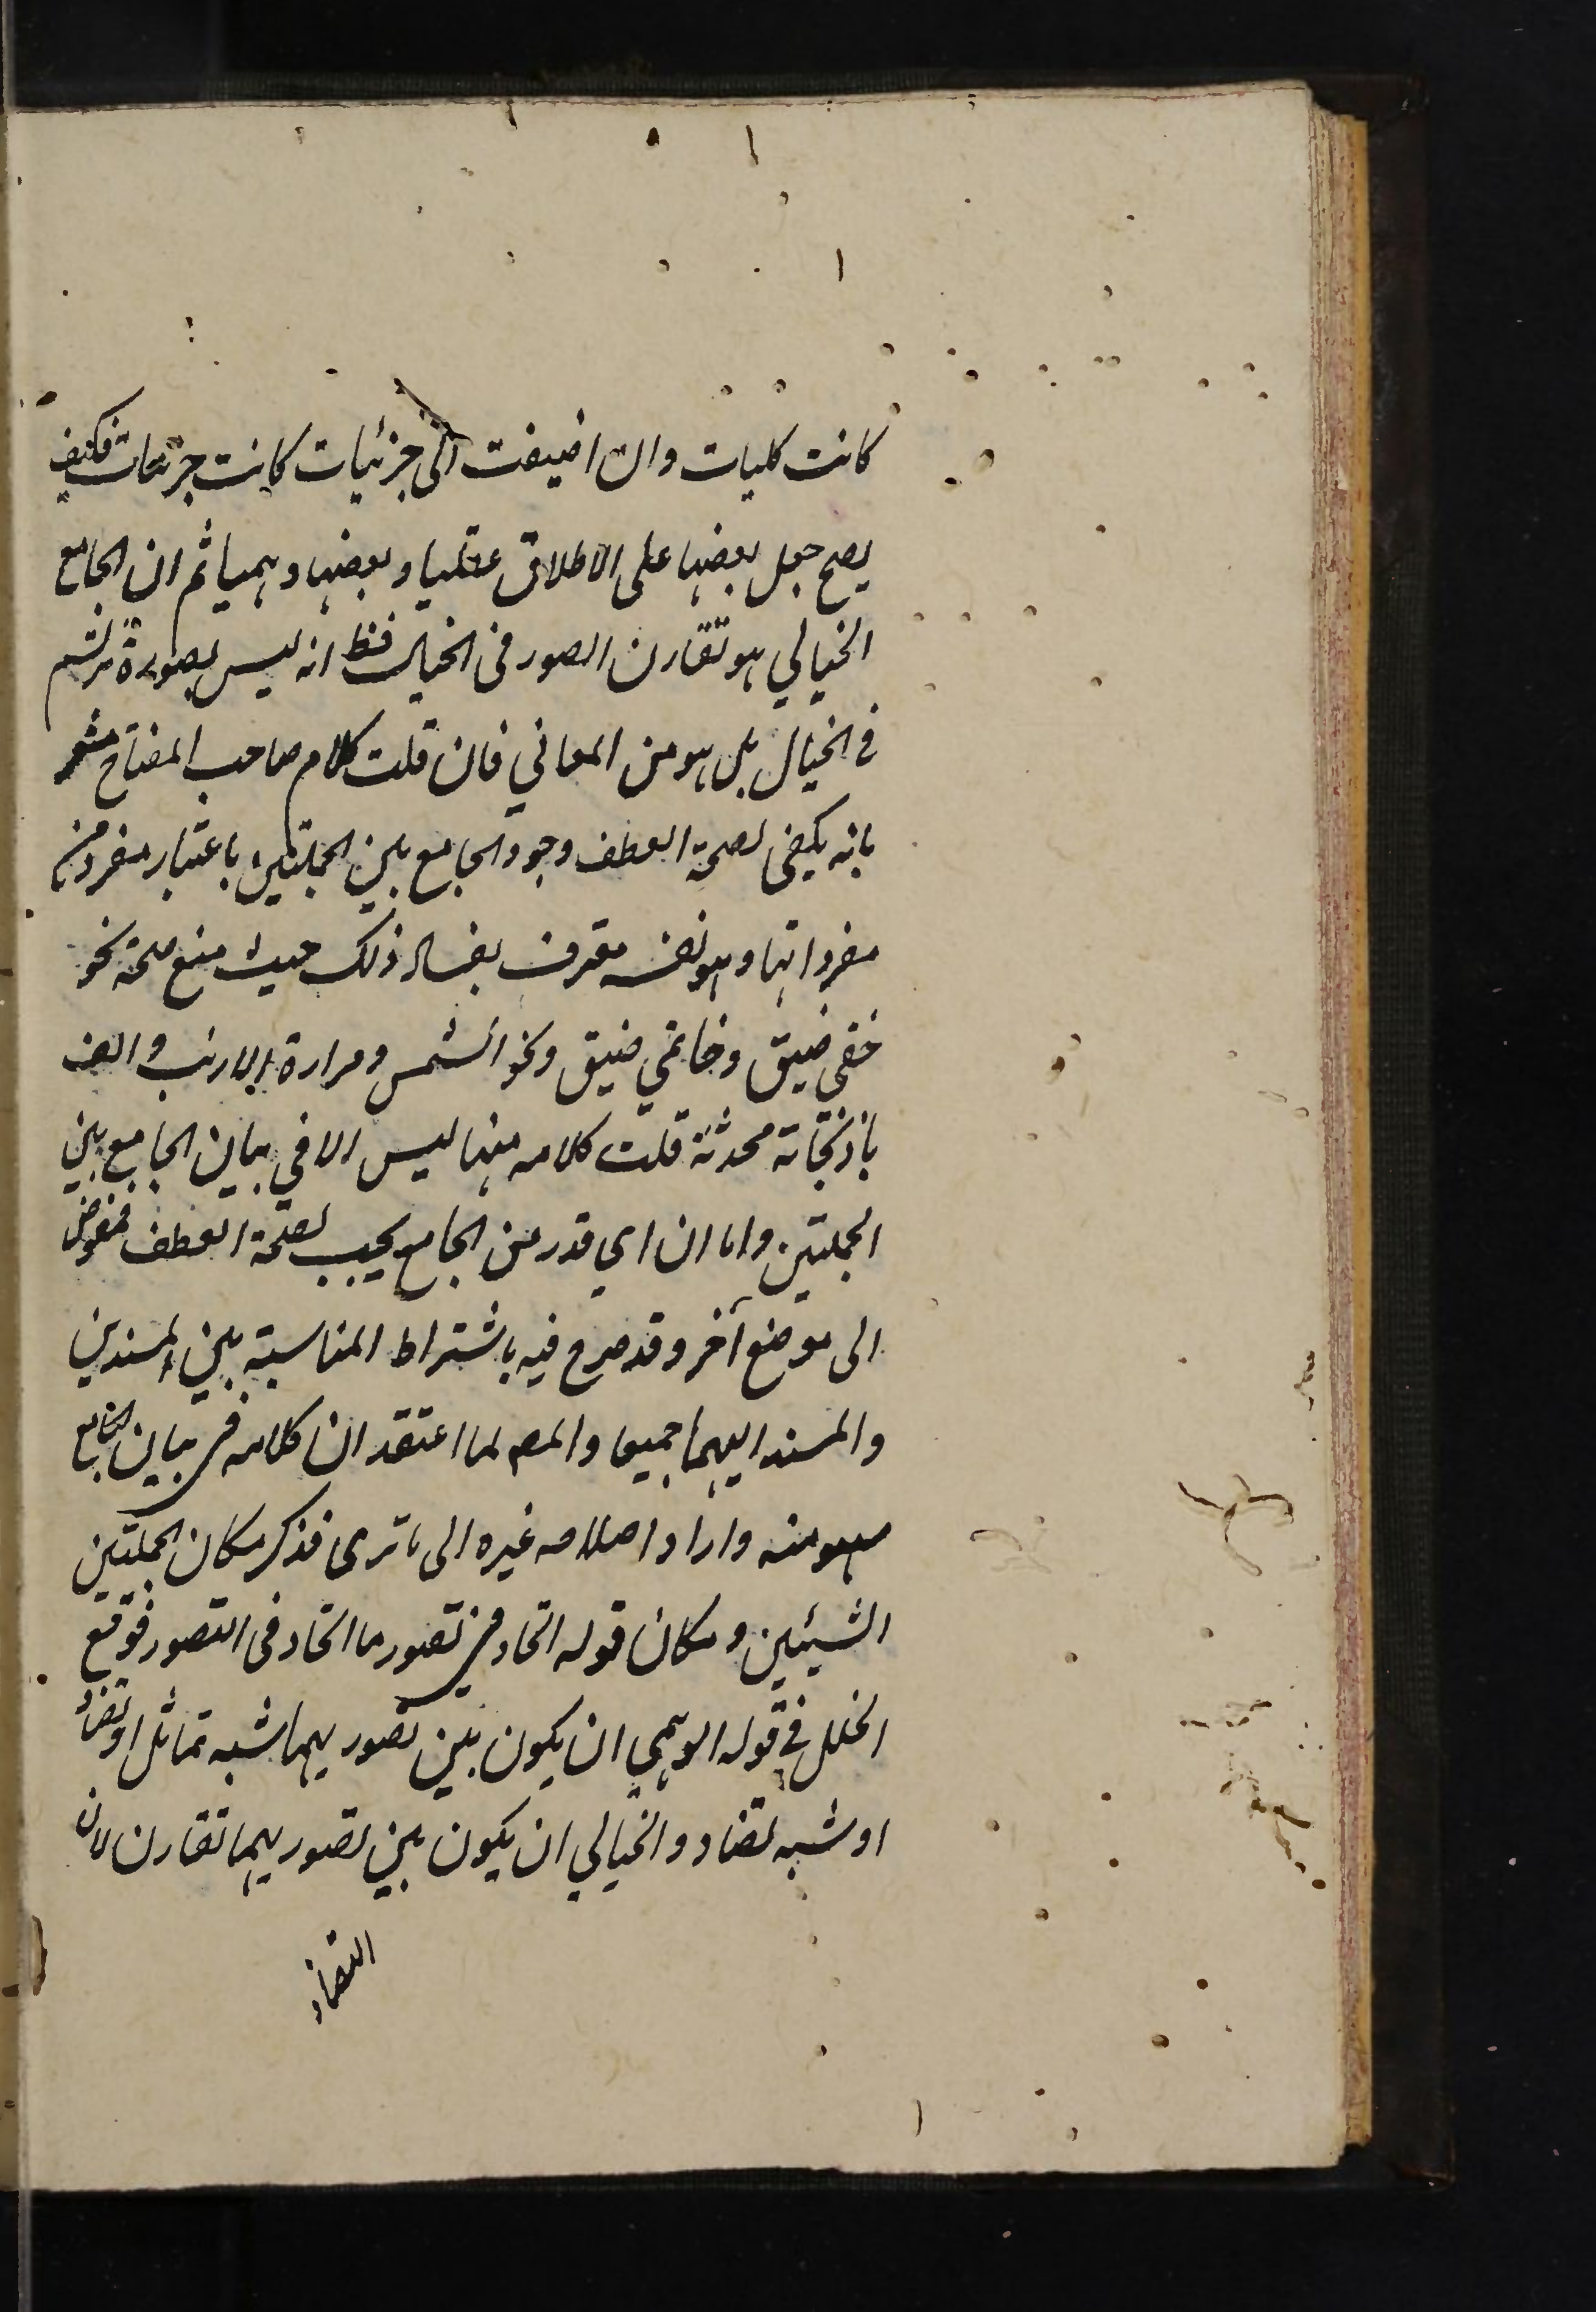 كانت كليات وان اضيفت الى جزئيات كانت جزئيات فكيف
يصح جعل بعضها على الاطلاق عقليا وبعضها وهميا ثم ان الجامع
الخيالي هو تقارن الصور فى الخيال فظ انه ليس بصورة ترتسم
فى الخيال بل هو من المعاني فان قلت كلام صاحب المفتاح مشعر
بانه يكفى لصحة العطف وجود الجامع بين الجملتين باعتبار مفرد من
مفرداتها وهو نفسه معترف بفساد ذلك حيث منع صحة نحو
خفى ضيق وخاتمي ضيق ونحو الشمس ومرارة الارنب والف
باذنجانة محدثة قلت كلامه هنا ليس الا في بيان الجامع بين
الجملتين واما ان اي قدر من الجامع يجب لصحة العطف فمفوض
الى موضع آخر وقد صرح فيه باشتراط المناسبة بين المسندين
والمسند اليهما جميعا والمص لما اعتقد ان كلامه فى بيان الجامع
سهو منه واراد اصلاحه غيره الى ما ترى فذكر مكان الجملتين
الشيئين ومكان قوله اتحاد فى تصور ما اتحاد فى التصور فوقع
الخلل في قوله الوهمي ان يكون بين تصوريهما شبه تماثل او تضاد
او شبه تضاد والخيالي ان يكون بين تصوريهما تقارن لان
التضاد